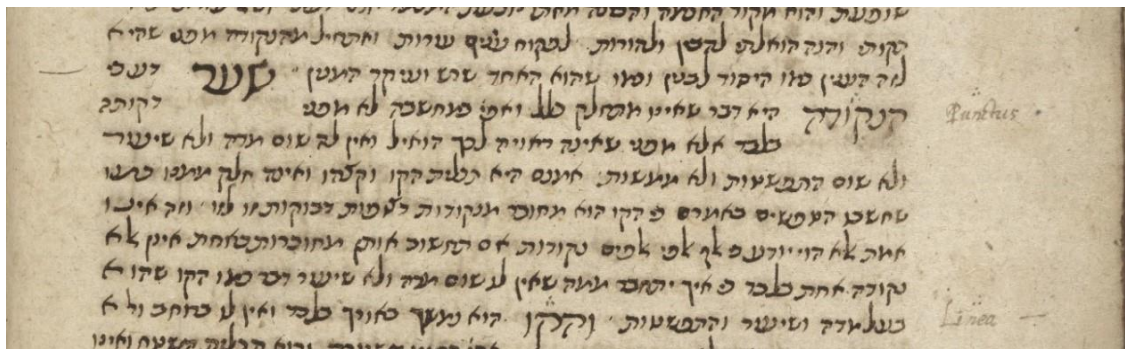 שופעת והוא מקור החכמה
תקותי והנה הואלתי לקטן ולהורות לפקוח עינים עורות ואתחיל מהנקודה מפני שהיא
לזה הענין כמו היסוד לבנין וכמו שהוא האחד שרש ועיקר המנין שער דע כי
הנקודה היא דבר שאינו מתחלק כלל ואפי׳ במחשבה לא מפני דקותה
Punctus
בלבד אלא מפני שאינה ראויה לכך הואיל ואין לה שום מדה ולא שיעור
ולא שום התפשטות ולא ממשות אמנם היא תכלית הקו וקצהו ואינה חלק ממנו כמו
שחשבו הטפשים באמרם כי הקו הוא מחובר מנקודות רצופות דבוקות זו לזו וזה אינו
אמת הלא הוי יודע כי אלף אלפי אלפים נקודות אם תחשוב אותן מחוברות כאחת אינן אלא
נקודה אחת בלבד כי איך יתחבר ממה שאין לו שום מדה ולא שיעור דבר כמו הקו שהוא
בעל מדה ושיעור והתפשטות והקו הוא נמשך באורך בלבד ואין לו רוחב ולא
Linea